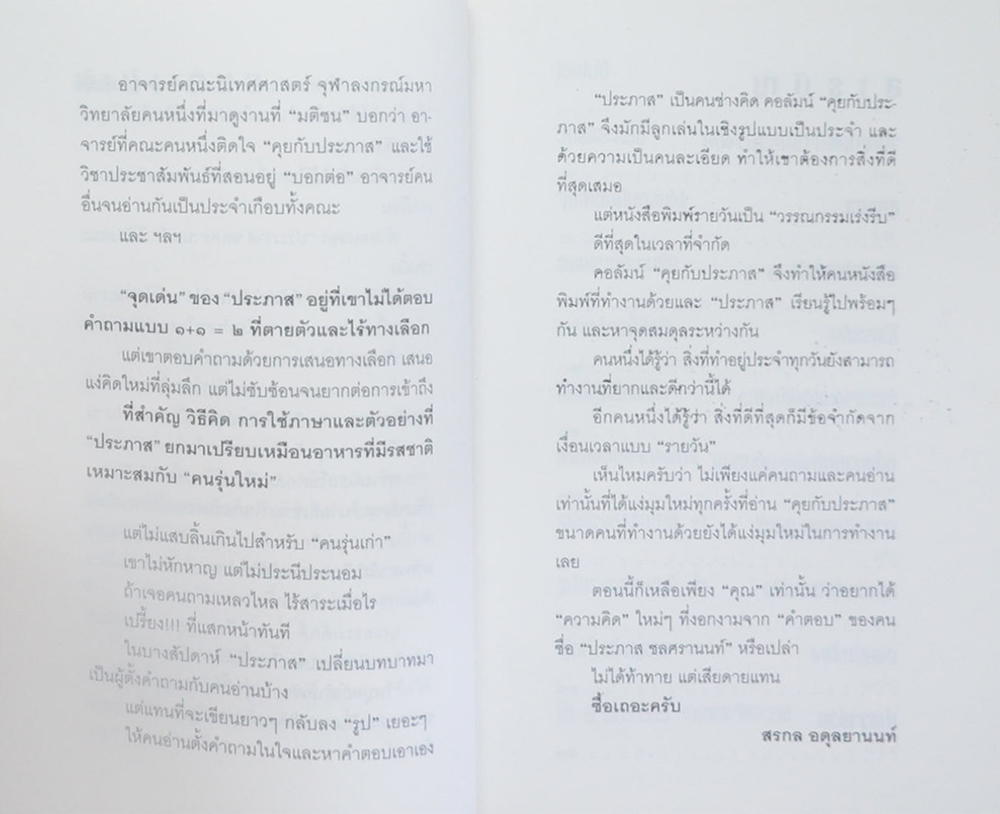 อาจารย์คณะนิเทศศาสตร์ จุฬาลงกรณ์มหา
วิทยาลัยคนหนึ่งที่มาดูงานที่ “มติชน” บอกว่า อา-
จารย์ที่คณะคนหนึ่งติดใจ “คุยกับประภาส” และใช้
วิชาประชาสัมพันธ์ที่สอนอยู่ “บอกต่อ” อาจารย์คน
อื่นจนอ่านกันเป็นประจำเกือบทั้งคณะ
และ ฯลฯ
“จุดเด่น” ของ “ประภาส” อยู่ที่เขาไม่ได้ตอบ
คำถามแบบ ๑+๑ = ๒ ที่ตายตัวและไร้ทางเลือก
แต่เขาตอบคำถามด้วยการเสนอทางเลือก เสนอ
แง่คิดใหม่ที่ลุ่มลึก แต่ไม่ซับซ้อนจนยากต่อการเข้าถึง
ที่สำคัญ วิธีคิด การใช้ภาษาและตัวอย่างที่
“ประภาส” ยกมาเปรียบเหมือนอาหารที่มีรสชาติ
เหมาะสมกับ “คนรุ่นใหม่”
แต่ไม่แสบลิ้นเกินไปสำหรับ “คนรุ่นเก่า”
เขาไม่หักหาญ แต่ไม่ประนีประนอม
ถ้าเจอคนถามเหลวไหล ไร้สาระเมื่อไร
เปรี้ยง!!! ที่แสกหน้าทันที
ในบางสัปดาห์ “ประภาส” เปลี่ยนบทบาทมา
เป็นผู้ตั้งคำถามกับคนอ่านบ้าง
แต่แทนที่จะเขียนยาวๆ กลับลง “รูป” เยอะๆ
ให้คนอ่านตั้งคำถามในใจและหาคำตอบเอาเอง
“ประภาส” เป็นคนช่างคิด คอลัมน์ “คุยกับประ-
ภาส” จึงมักมีลูกเล่นในเชิงรูปแบบเป็นประจำ และ
ด้วยความเป็นคนละเอียด ทำให้เขาต้องการสิ่งที่ดี
ที่สุดเสมอ
แต่หนังสือพิมพ์รายวันเป็น “วรรณกรรมเร่งรีบ”
ดีที่สุดในเวลาที่จำกัด
คอลัมน์ “คุยกับประภาส” จึงทำให้คนหนังสือ
พิมพ์ที่ทำงานด้วยและ “ประภาส” เรียนรู้ไปพร้อมๆ
กัน และหาจุดสมดุลระหว่างกัน
คนหนึ่งได้รู้ว่า สิ่งที่ทำอยู่ประจำทุกวันยังสามารถ
ทำงานที่ยากและดีกว่านี้ได้
อีกคนหนึ่งได้รู้ว่า สิ่งที่ดีที่สุดก็มีข้อจำกัดจาก
เงื่อนเวลาแบบ “รายวัน”
เห็นไหมครับว่า ไม่เพียงแค่คนถามและคนอ่าน
เท่านั้นที่ได้แง่มุมใหม่ทุกครั้งที่อ่าน “คุยกับประภาส”
ขนาดคนที่ทำงานด้วยยังได้แง่มุมใหม่ในการทำงาน
เลย
ตอนนี้ก็เหลือเพียง “คุณ” เท่านั้น ว่าอยากได้
“ความคิด” ใหม่ๆ ที่งอกงามจาก “คำตอบ” ของคน
ชื่อ “ประภาส ชลศรานนท์” หรือเปล่า
ไม่ได้ท้าทาย แต่เสียดายแทน
ซื้อเถอะครับ
สรกล อดุลยานนท์